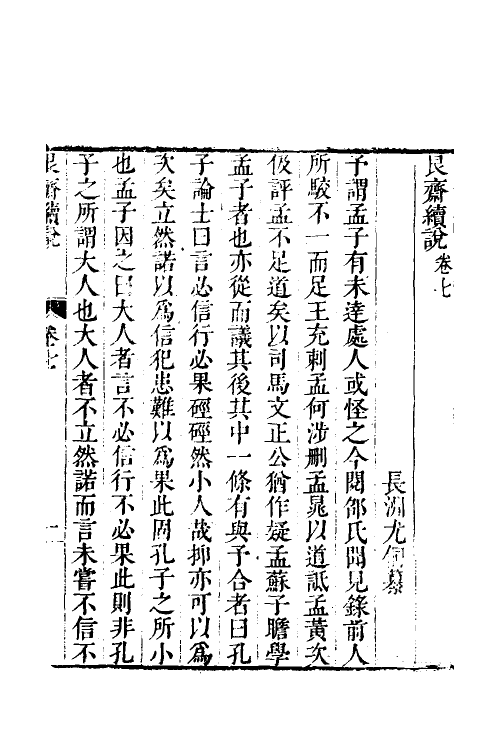 艮齋續說卷七
長洲尤侗纂
予謂孟子有未達處人或怪之今閱邵氏聞見錄前人
所駁不一而足王充刺孟何涉刪孟晁以道詆孟黃次
伋評孟不足道矣以司馬文正公猶作疑孟蘇子瞻學
孟子者也亦從而議其後其中一條有與予合者曰孔
子論士曰言必信行必果硜硜然小人哉抑亦可以為
次矣立然諾以為信犯患難以為果此固孔子之所小
也孟子因之曰大人者言不必信行不必果此則非孔
子之所謂大人也大人者不立然諾而言未嘗不信不
艮齋續說 卷七 一